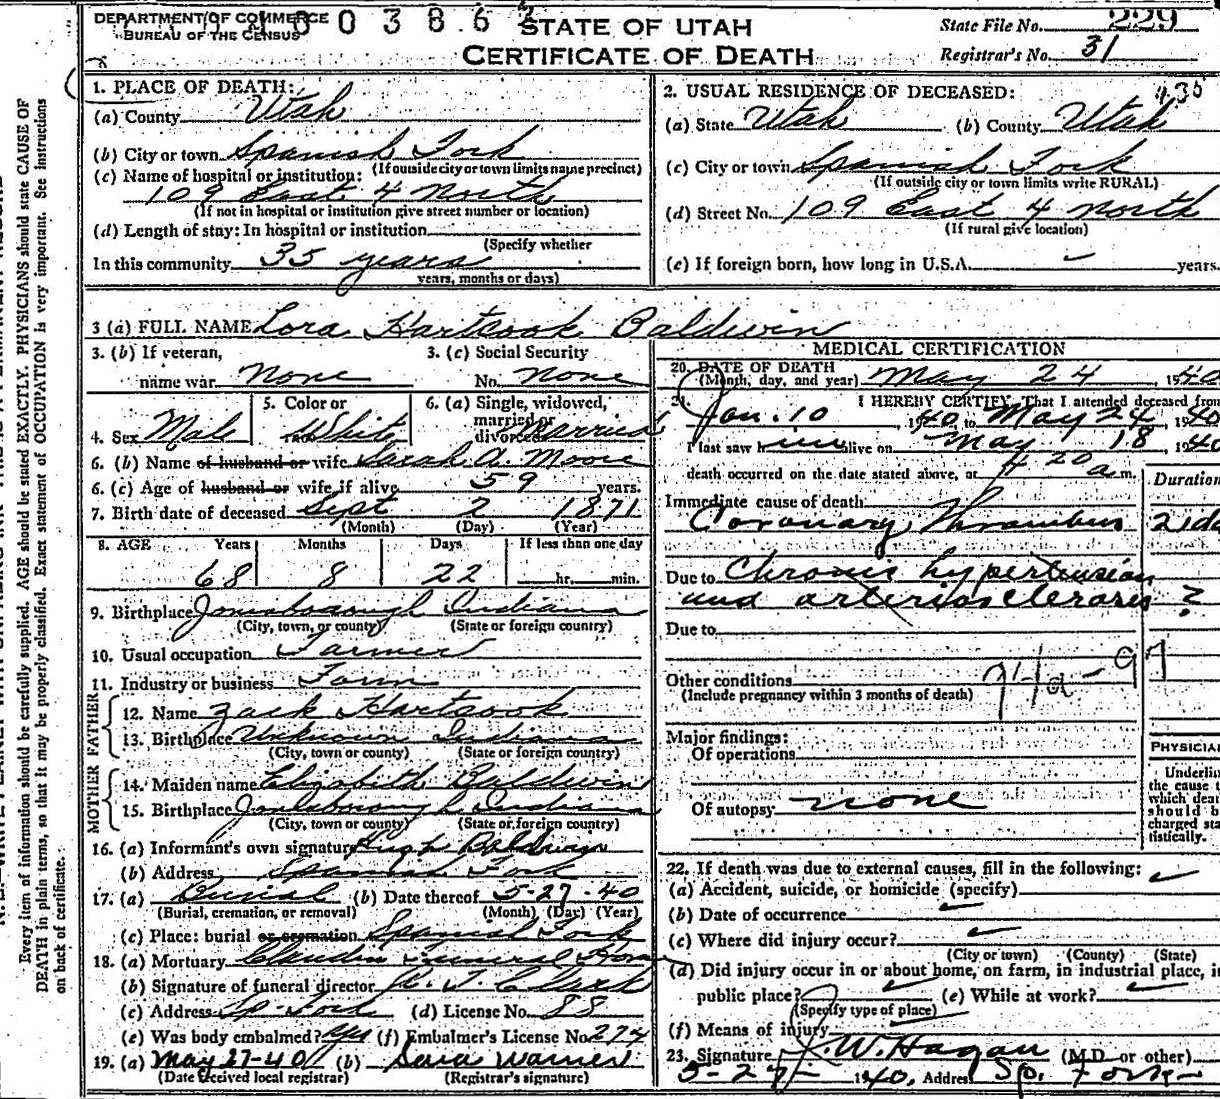 DEPARTMENT OF COMMERCE
BUREAU OF THE CENSUS
0 0 3 8 6
STATE OF UTAH
CERTIFICATE OF DEATH
State File No. 229
Registrar's No. 31
1. PLACE OF DEATH:
(a) County Utah
(b) City or town Spanish Fork
(If outside city or town limits name precinct)
(c) Name of hospital or institution:
109 East 4 North
(If not in hospital or institution give street number or location)
(d) Length of stay: In hospital or institution
(Specify whether
In this community 35 years
years, months or days)
2. USUAL RESIDENCE OF DECEASED:
435
(a) State Utah (b) County Utah
(c) City or town Spanish Fork
(If outside city or town limits write RURAL)
(d) Street No. 109 East 4 North
(If rural give location)
(e) If foreign born, how long in U.S.A. years.
3 (a) FULL NAME Lora Hartsook Baldwin
3. (b) If veteran,
name war None
3. (c) Social Security
No. None
4. Sex Mal
5. Color or
White
6. (a) Single, widowed,
married or
divorced Married
6. (b) Name of husband or wife Sarah A. Moore
6. (c) Age of husband or wife if alive 59 years.
7. Birth date of deceased Sept 2 1871
(Month) (Day) (Year)
8. AGE Years Months Days If less than one day
68 8 22 hr. min.
9. Birthplace Jonesborough Indiana
(City, town, or county) (State or foreign country)
10. Usual occupation Farmer
11. Industry or business Farm
FATHER
12. Name Zack Hartsook
13. Birthplace Unknown Indiana
(City, town or county) (State or foreign country)
MOTHER
14. Maiden name Elizabeth Baldwin
15. Birthplace Jonesborough Indiana
(City, town or county) (State or foreign country)
16. (a) Informant's own signature Hugh Baldwin
(b) Address Spanish Fork
17. (a) Burial (b) Date thereof 5-27-40
(Burial, cremation, or removal) (Month) (Day) (Year)
(c) Place: burial or cremation Spanish Fork
18. (a) Mortuary Claudin Funeral Home
(b) Signature of funeral director A. T. Clark
(c) Address Sp Fork (d) License No. 88
(e) Was body embalmed? yes (f) Embalmer's License No. 274
19. (a) May 27-40 (b) Sara Warner
(Date received local registrar) (Registrar's signature)
MEDICAL CERTIFICATION
20. DATE OF DEATH
(Month, day, and year) May 24, 1940
21. I HEREBY CERTIFY, That I attended deceased from
Jan. 10, 1940, to May 24, 1940
I last saw him alive on May 18, 1940
death occurred on the date stated above, at 4 20 a m.
Duration
Immediate cause of death
Coronary Thrombus 2 da
Due to Chronic hypertension
and arteriosclerosis ?
Due to
Other conditions
(Include pregnancy within 3 months of death)
94a - 97
Major findings:
Of operations
Of autopsy none
PHYSICIA
Underlin
the cause t
which deat
should b
charged sta
tistically.
22. If death was due to external causes, fill in the following:
(a) Accident, suicide, or homicide (specify)
(b) Date of occurrence
(c) Where did injury occur?
(City or town) (County) (State)
(d) Did injury occur in or about home, on farm, in industrial place, in
public place? (e) While at work?
(Specify type of place)
(f) Means of injury
23. Signature J. W. Hagan (M.D. or other)
5-27- 1940, Address Sp. Fork
Every item of information should be carefully supplied. AGE should be stated EXACTLY. PHYSICIANS should state CAUSE OF
DEATH in plain terms, so that it may be properly classified. Exact statement of OCCUPATION is very important. See instructions
on back of certificate.